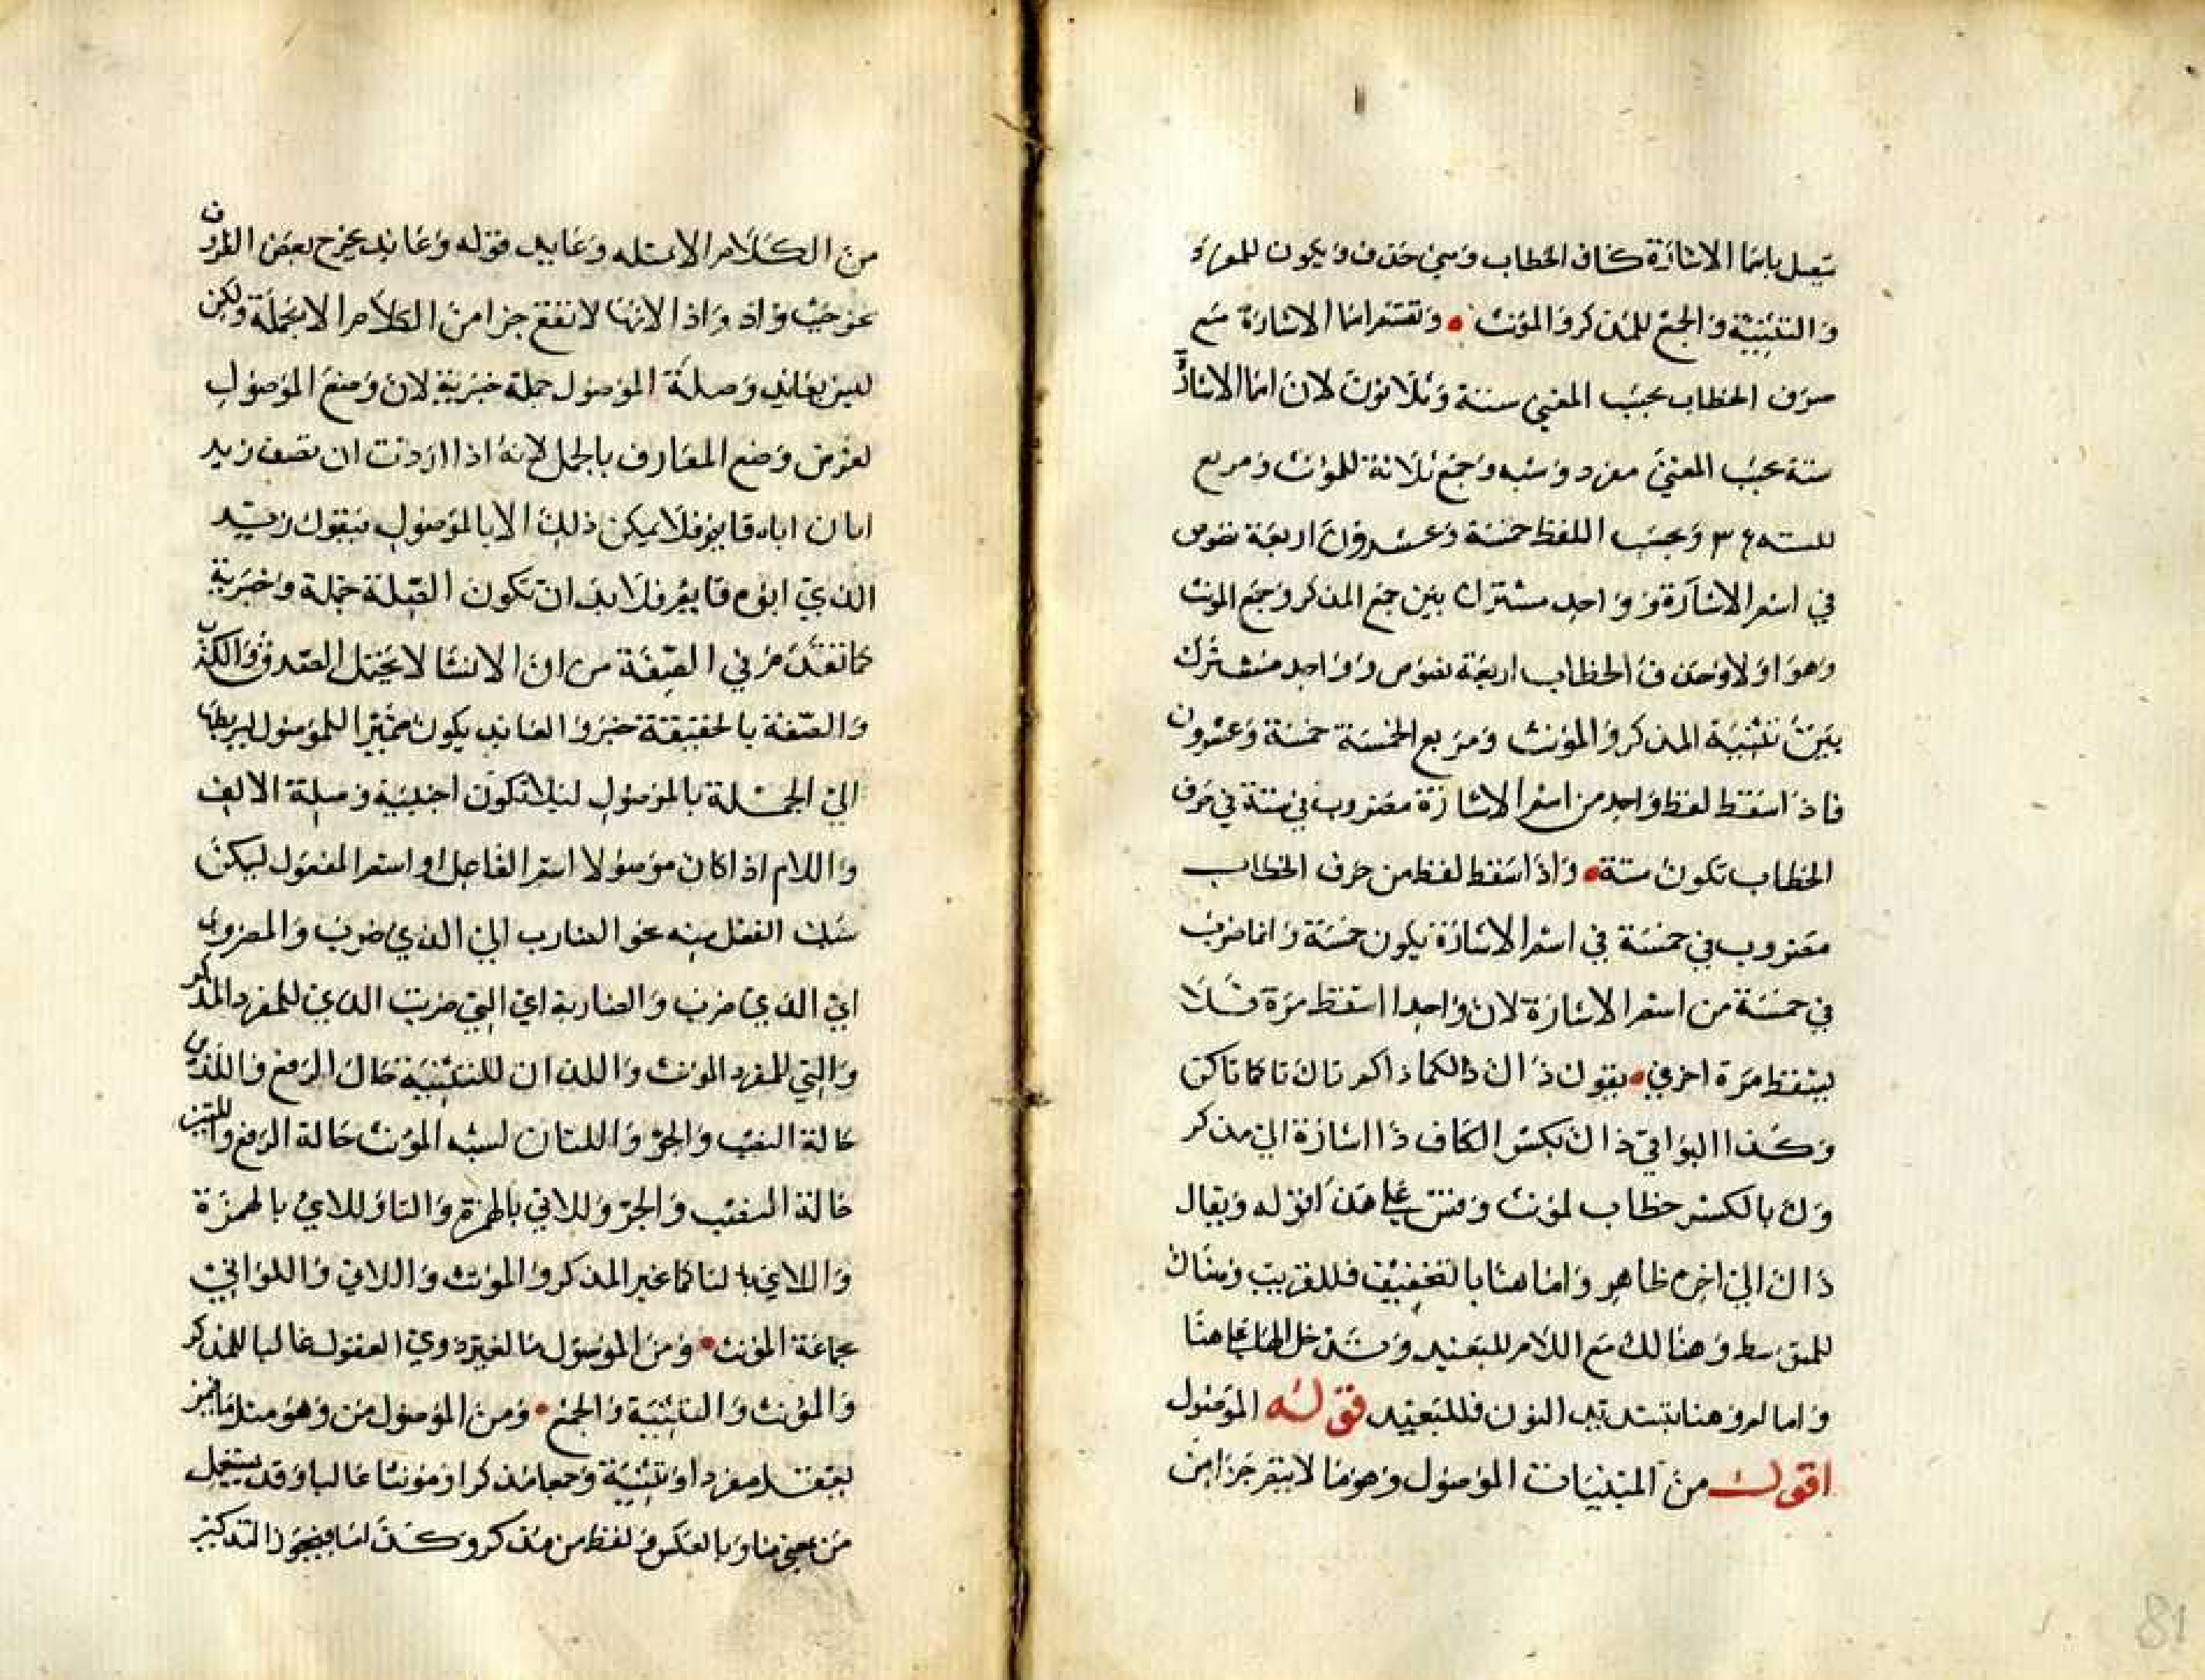 يتصل باسما الاشارة كاف الخطاب وهي حذف ويكون للمفرد
والتثنية والجمع للمذكر والمؤنث وتقسم اسما الاشارة مع
حرف الخطاب بحسب المعني ستة وثلاثون لان اسما الاشارة
ستة بحسب المعني مفرد وشبه وجمع ثلاثة للمؤنث ومربع
للستة ٣٦ وبحسب اللفظ خمسة وعشرون اربعة نصوص
في اسم الاشارة و واحد مشترك بين جمع المذكر وجمع المونث
وهو اولا وحذف الخطاب اربعة نصوص و واحد مشترك
بين تثنية المذكر والمؤنث ومربع الخمسة خمسة وعشرون
فاذا اسقط لفظ واحد من اسم الاشارة مضروب في ستة في حرف
الخطاب تكون ستة واذا اسقط لفظ من حرف الخطاب
مضروب في خمسة في اسم الاشارة يكون خمسة وانما ضرب
في خمسة من اسم الاشارة لان واحدا اسقط مرة فلا
يسقط مرة اخري يقول ذاك ذاكما ذاكم تاك تاكما تاكن
وكذا البواقي ذاك بكسر الكاف ذا اشارة الي مذكر
وك بالكسر خطاب لمؤنث وقس علي هذا قوله ويقال
ذاك الي اخره ظاهر واما هنا بالتخفيف فللقريب وهناك
للمتوسط وهنالك مع اللام للبعيد وتدخل الها علي هنا
واما ثم وهنا بتشديد النون فللبعيد قوله الموصول
اقول من المبنيات الموصول وهو ما لا يتم جزا من
من الكلام الا بصله وعايد قوله وعايد يخرج بعض الظروف
نحو حيث واذ واذا لانها لا تقع جزا من الكلام الا بجملة ولكن
ليس بعايد وصلة الموصول جملة خبرية لان وضع الموصول
لغرض وضع المعارف بالجمل لانه اذا اردت ان تصف زيد
ابان اباه قايم فلا يمكن ذلك الا بالموصول فيقول زيد
الذي ابوه قايم فلا بد ان تكون الصلة جملة وخبرية
كما تقدم في الصفة من ان الانشا لا يحتمل الصدق والكذب
والصفة بالحقيقة خبر والعايد يكون ضميرا للموصول ليربطها
الي الجملة بالموصول ليلا تكون اجنبية وصلة الالف
واللام اذا كان موصولا اسم الفاعل او اسم المفعول ليكن
سبك الفعل منه نحو الضارب اي الذي ضرب والمضروب
اي الذي ضرب والضاربة اي التي ضربت الذي للمفرد المذكر
والتي للمفرد المونث واللذان للتثنية حال الرفع واللذين
حالة النصب والجر واللتان لشبه المؤنث حالة الرفع واللتين
حالة النصب والجر واللاتي بالهمزة والتا واللاي بالهمزة
واللاي لنا كما عبر المذكر والمؤنث واللاتي واللواتي
جماعة المؤنث ومن الموصول ما لغير ذوي العقول غالبا للمذكر
والمؤنث والتثنية والجمع ومن الموصول من وهو مثل ما لمن
يعقل مفردا وتثنية وجمعا مذكرا ومؤنثا غالبا وقد يستعمل
من بمعني ما وبالعكس ولفظ من مذكر وكذا ما فيجوز التذكير